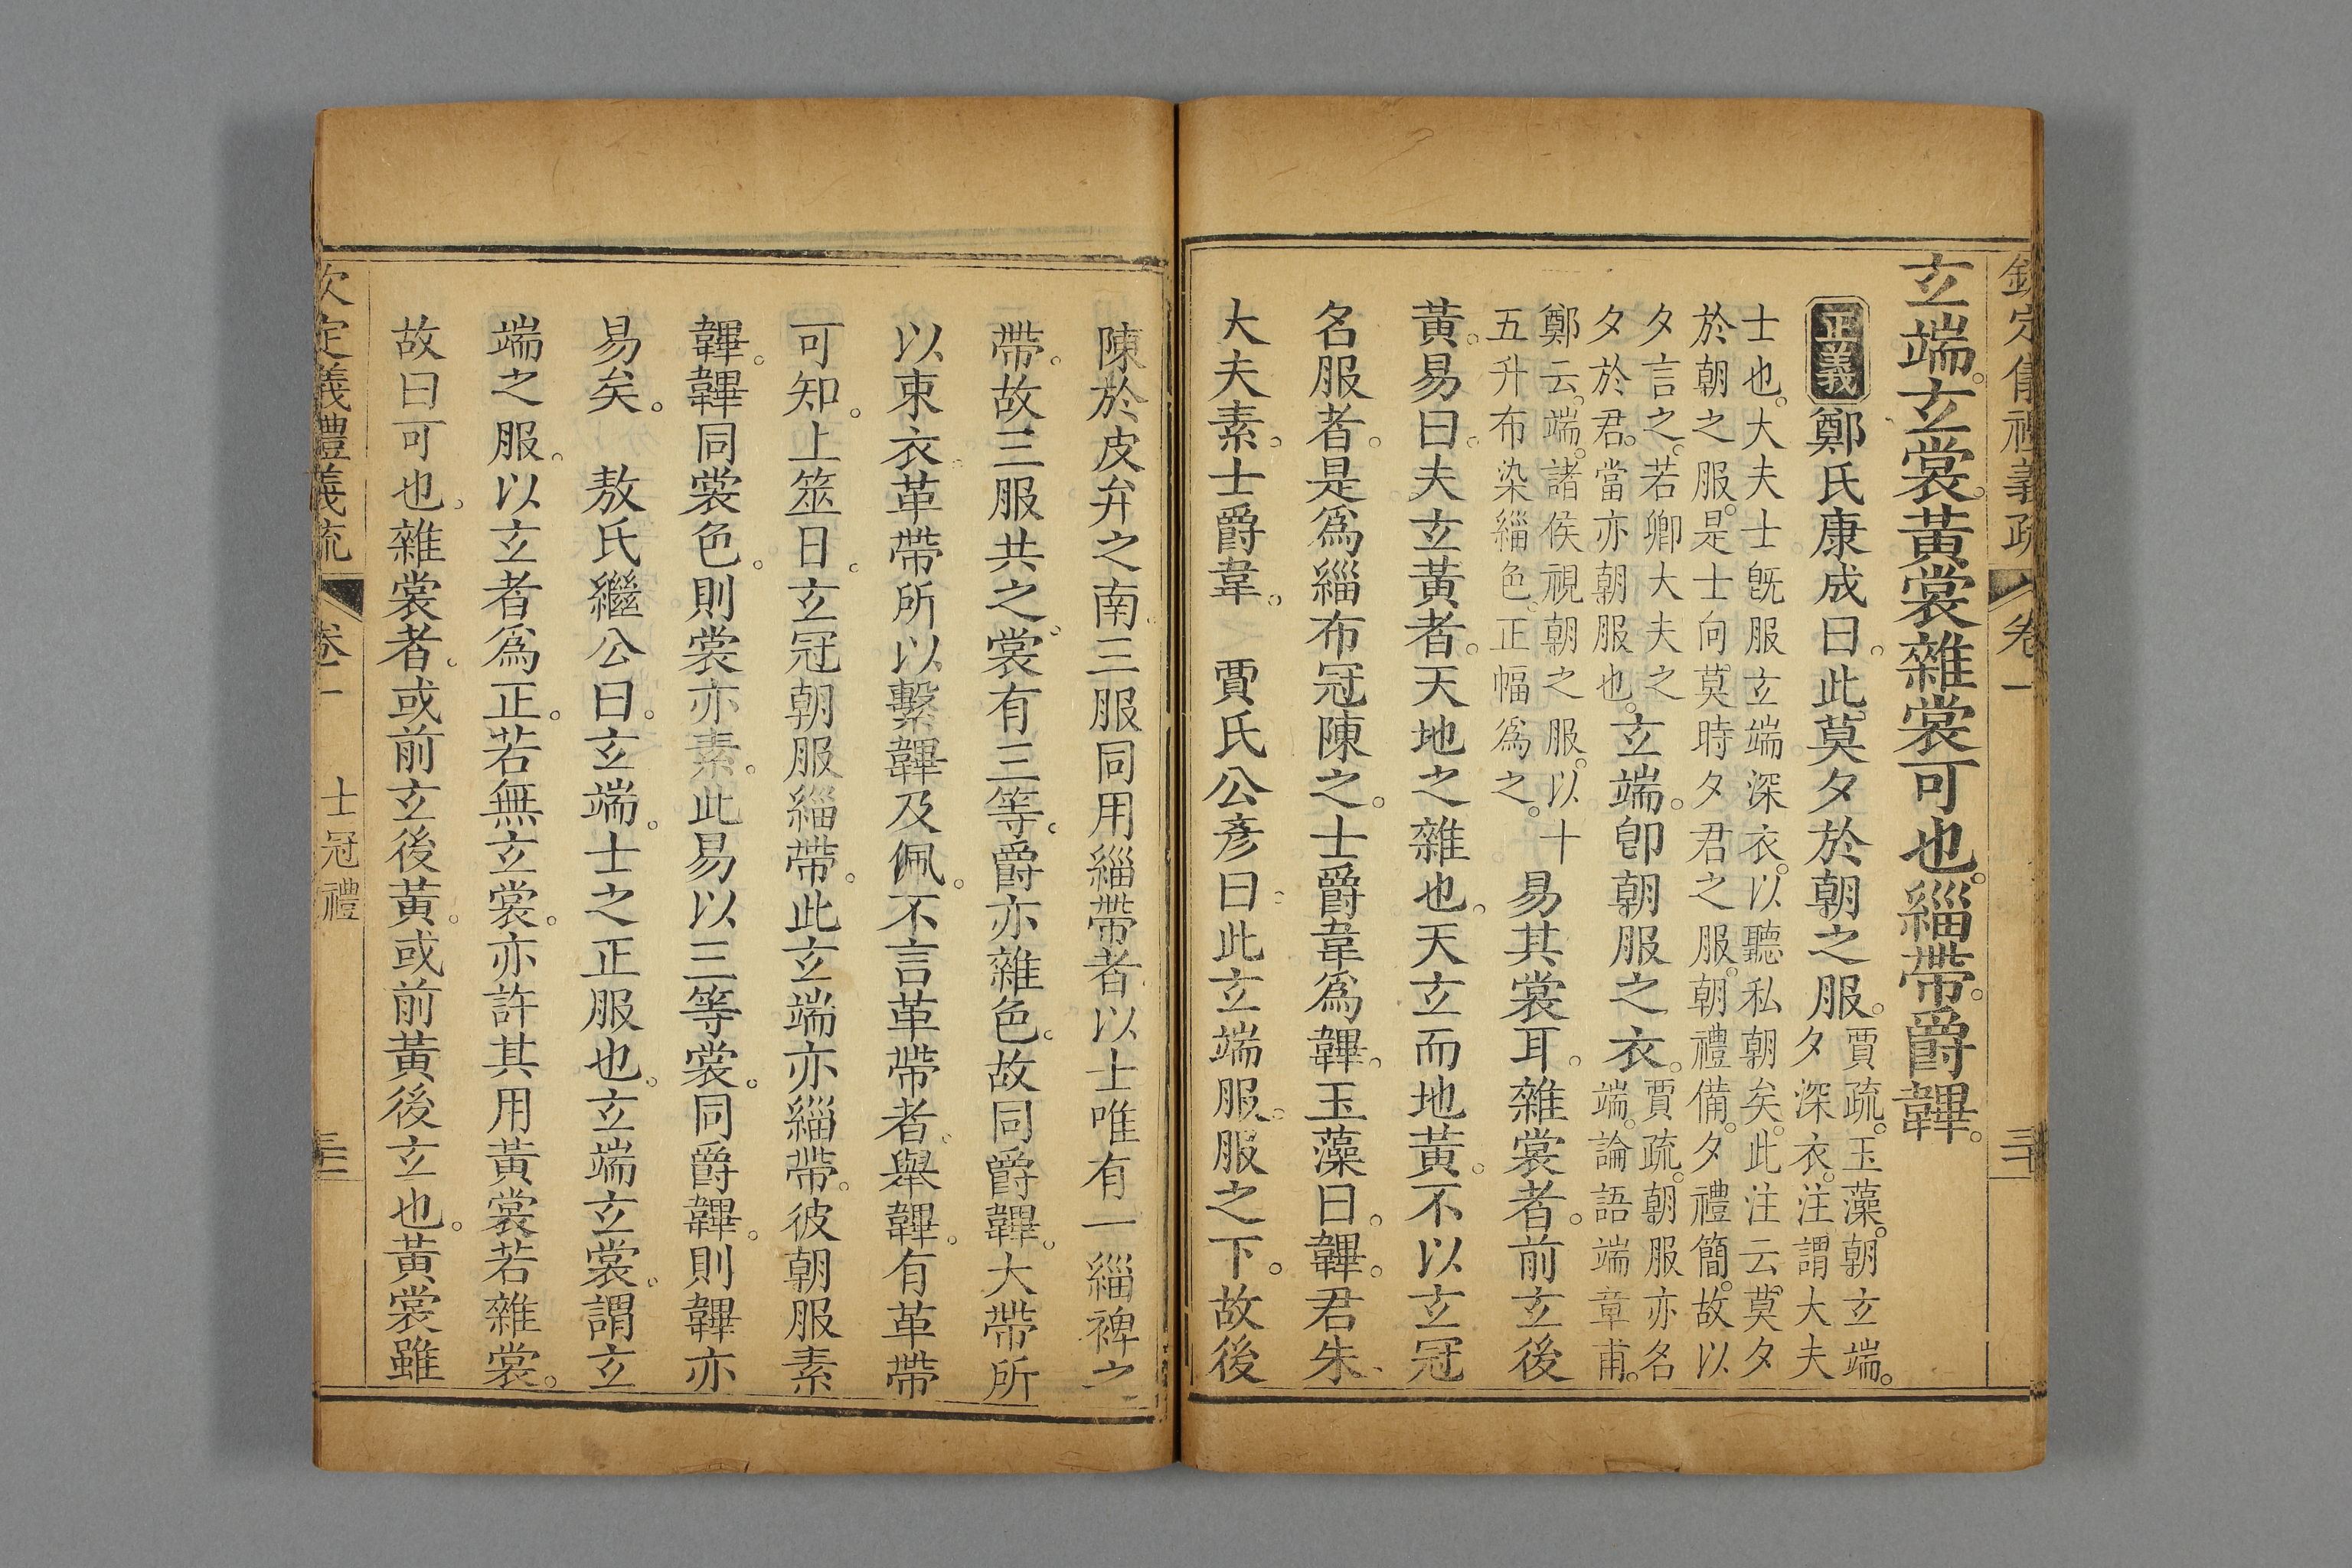 欽定儀禮義疏 卷一
玄端。玄裳。黃裳。雜裳可也。緇帶。爵韠。
正義 鄭氏康成曰。此莫夕於朝之服。
賈疏。玉藻。朝玄端。
夕深衣。注謂大夫
士也。大夫士旣服玄端深衣。以聽私朝矣。此注云。莫夕
於朝之服。是士向莫時夕君之服。朝禮備。夕禮簡。故以
夕言之。若卿大夫之
夕於君。當亦朝服也。
玄端。卽朝服之衣。
賈疏。朝服亦名
端。論語端章甫。
鄭云。端。諸侯視朝之服。以十
五升布染緇色。正幅爲之。
易其裳耳。雜裳者。前玄後
黃。易曰。夫玄黃者。天地之雜也。天玄而地黃。不以玄冠
名服者。是爲緇布冠陳之。士爵韋爲韠。玉藻曰。韠。君朱、
大夫素。士爵韋。　賈氏公彥曰。此玄端服。服之下。故後
陳於皮弁之南。三服同用緇帶者。以士唯有一緇裨之
帶。故三服共之。裳有三等。爵亦雜色。故同爵韠。大帶所
以束衣。革帶所以繫韠及佩。不言革帶者。舉韠。有革帶
可知。上筮日。玄冠朝服緇帶。此玄端亦緇帶。彼朝服素
韠。韠同裳色。則裳亦素。此易以三等裳。同爵韠。則韠亦
易矣。　敖氏繼公曰。玄端。士之正服也。玄端玄裳。謂玄
端之服。以玄者爲正。若無玄裳。亦許其用黃裳若雜裳。
故曰可也。雜裳者。或前玄後黃。或前黃後玄也。黃裳雖
欽定義禮義疏 卷一 士冠禮